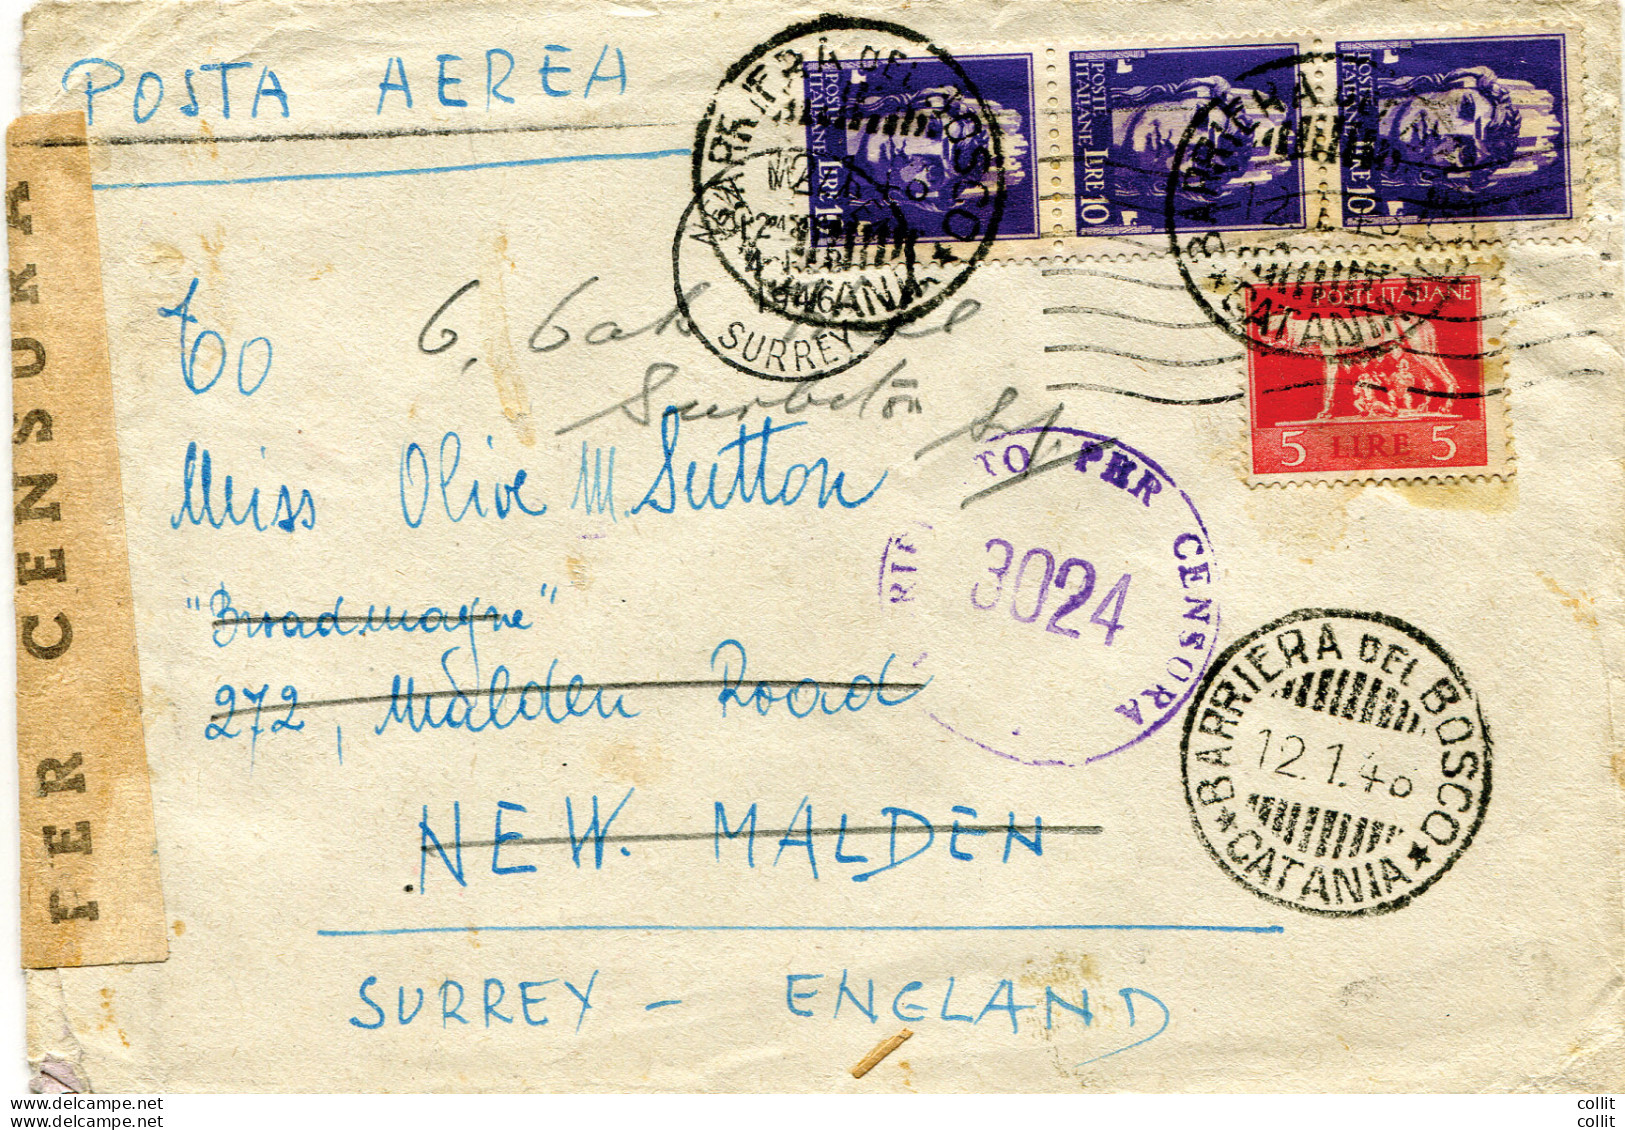 POSTA AEREA
POSTE ITALIANE LIRE 10
POSTE ITALIANE LIRE 10
POSTE ITALIANE LIRE 10
POSTE ITALIANE
5 LIRE 5
BARRIERA DEL BOSCO
CATANIA
BARRIERA
CATANIA
12
SURREY
to
6,
Surbiton
Miss Olive M. Sutton
"Broadmayne"
272, Malden Road
NEW. MALDEN
SURREY - ENGLAND
PER CENSURA
TO PER CENSURA
3024
BARRIERA DEL BOSCO
12.1.46
CATANIA
collit
collit